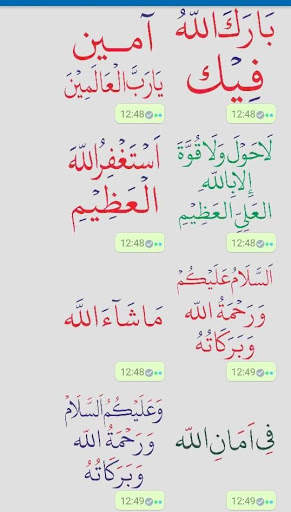 بَارَكَ اللّٰه
فِيْك
12:48
آمــين
يَارَبَّ الْعَالَمِيْنَ
12:48
لَاحَوْلَ وَلَا قُوَّةَ
إِلَّا بِاللّٰهِ
العَلِيِّ العَظِيْمِ
12:48
اَسْتَغْفِرُ اللّٰهَ
الْعَظِيْمِ
12:48
اَلسَّلَامُ عَلَيْكُمْ
وَرَحْمَةُ اللّٰه
وَبَرَكَاتُهُ
12:49
مَاشَآءَ اللّٰه
12:48
فِي اَمَانِ اللّٰه
12:49
وَعَلَيْكُمُ السَّلَامُ
وَرَحْمَةُ اللّٰه
وَبَرَكَاتُهُ
12:49